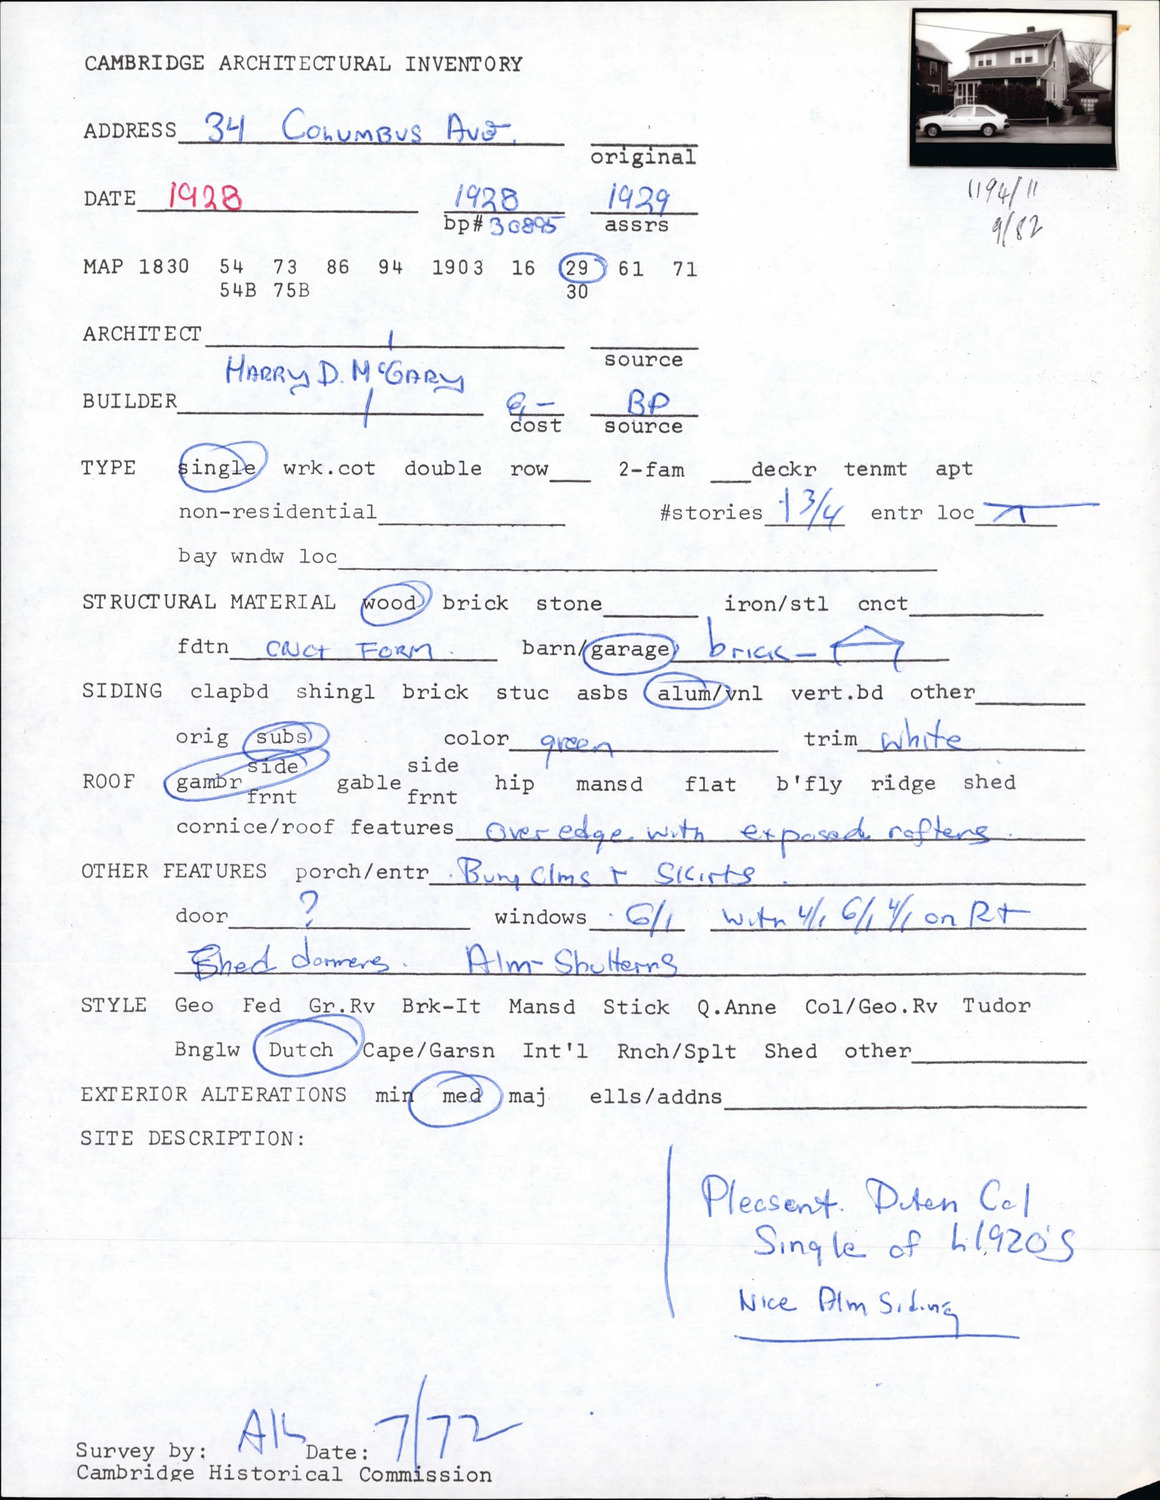 CAMBRIDGE ARCHITECTURAL INVENTORY
ADDRESS 34 Columbus Ave.
original
1194/11
9/82
DATE 1928 1928 1929
bp# 30895 assrs
MAP 1830 54 73 86 94 1903 16 29 61 71
54B 75B 30
ARCHITECT
source
Harry D. McGary
BUILDER 9,- BP
cost source
TYPE single wrk.cot double row 2-fam deckr tenmt apt
non-residential #stories 1 3/4 entr loc
bay wndw loc
STRUCTURAL MATERIAL wood brick stone iron/stl cnct
fdtn CNCT FORM. barn/garage brick-
SIDING clapbd shingl brick stuc asbs alum/vnl vert.bd other
orig subs color green trim white
ROOF gambr side frnt gable side frnt hip mansd flat b'fly ridge shed
cornice/roof features over edge with exposed rafters.
OTHER FEATURES porch/entr Bung Clms + Skirts.
door ? windows 6/1 with 4/1 6/1 4/1 on Rt
Shed dormers. Alm- Shutterns
STYLE Geo Fed Gr.Rv Brk-It Mansd Stick Q.Anne Col/Geo.Rv Tudor
Bnglw Dutch Cape/Garsn Int'l Rnch/Splt Shed other
EXTERIOR ALTERATIONS min med maj ells/addns
SITE DESCRIPTION:
Pleasent. Dutch Col
Single of L1920'S
Nice Alm Siding
Survey by: Date: 7/72
Cambridge Historical Commission